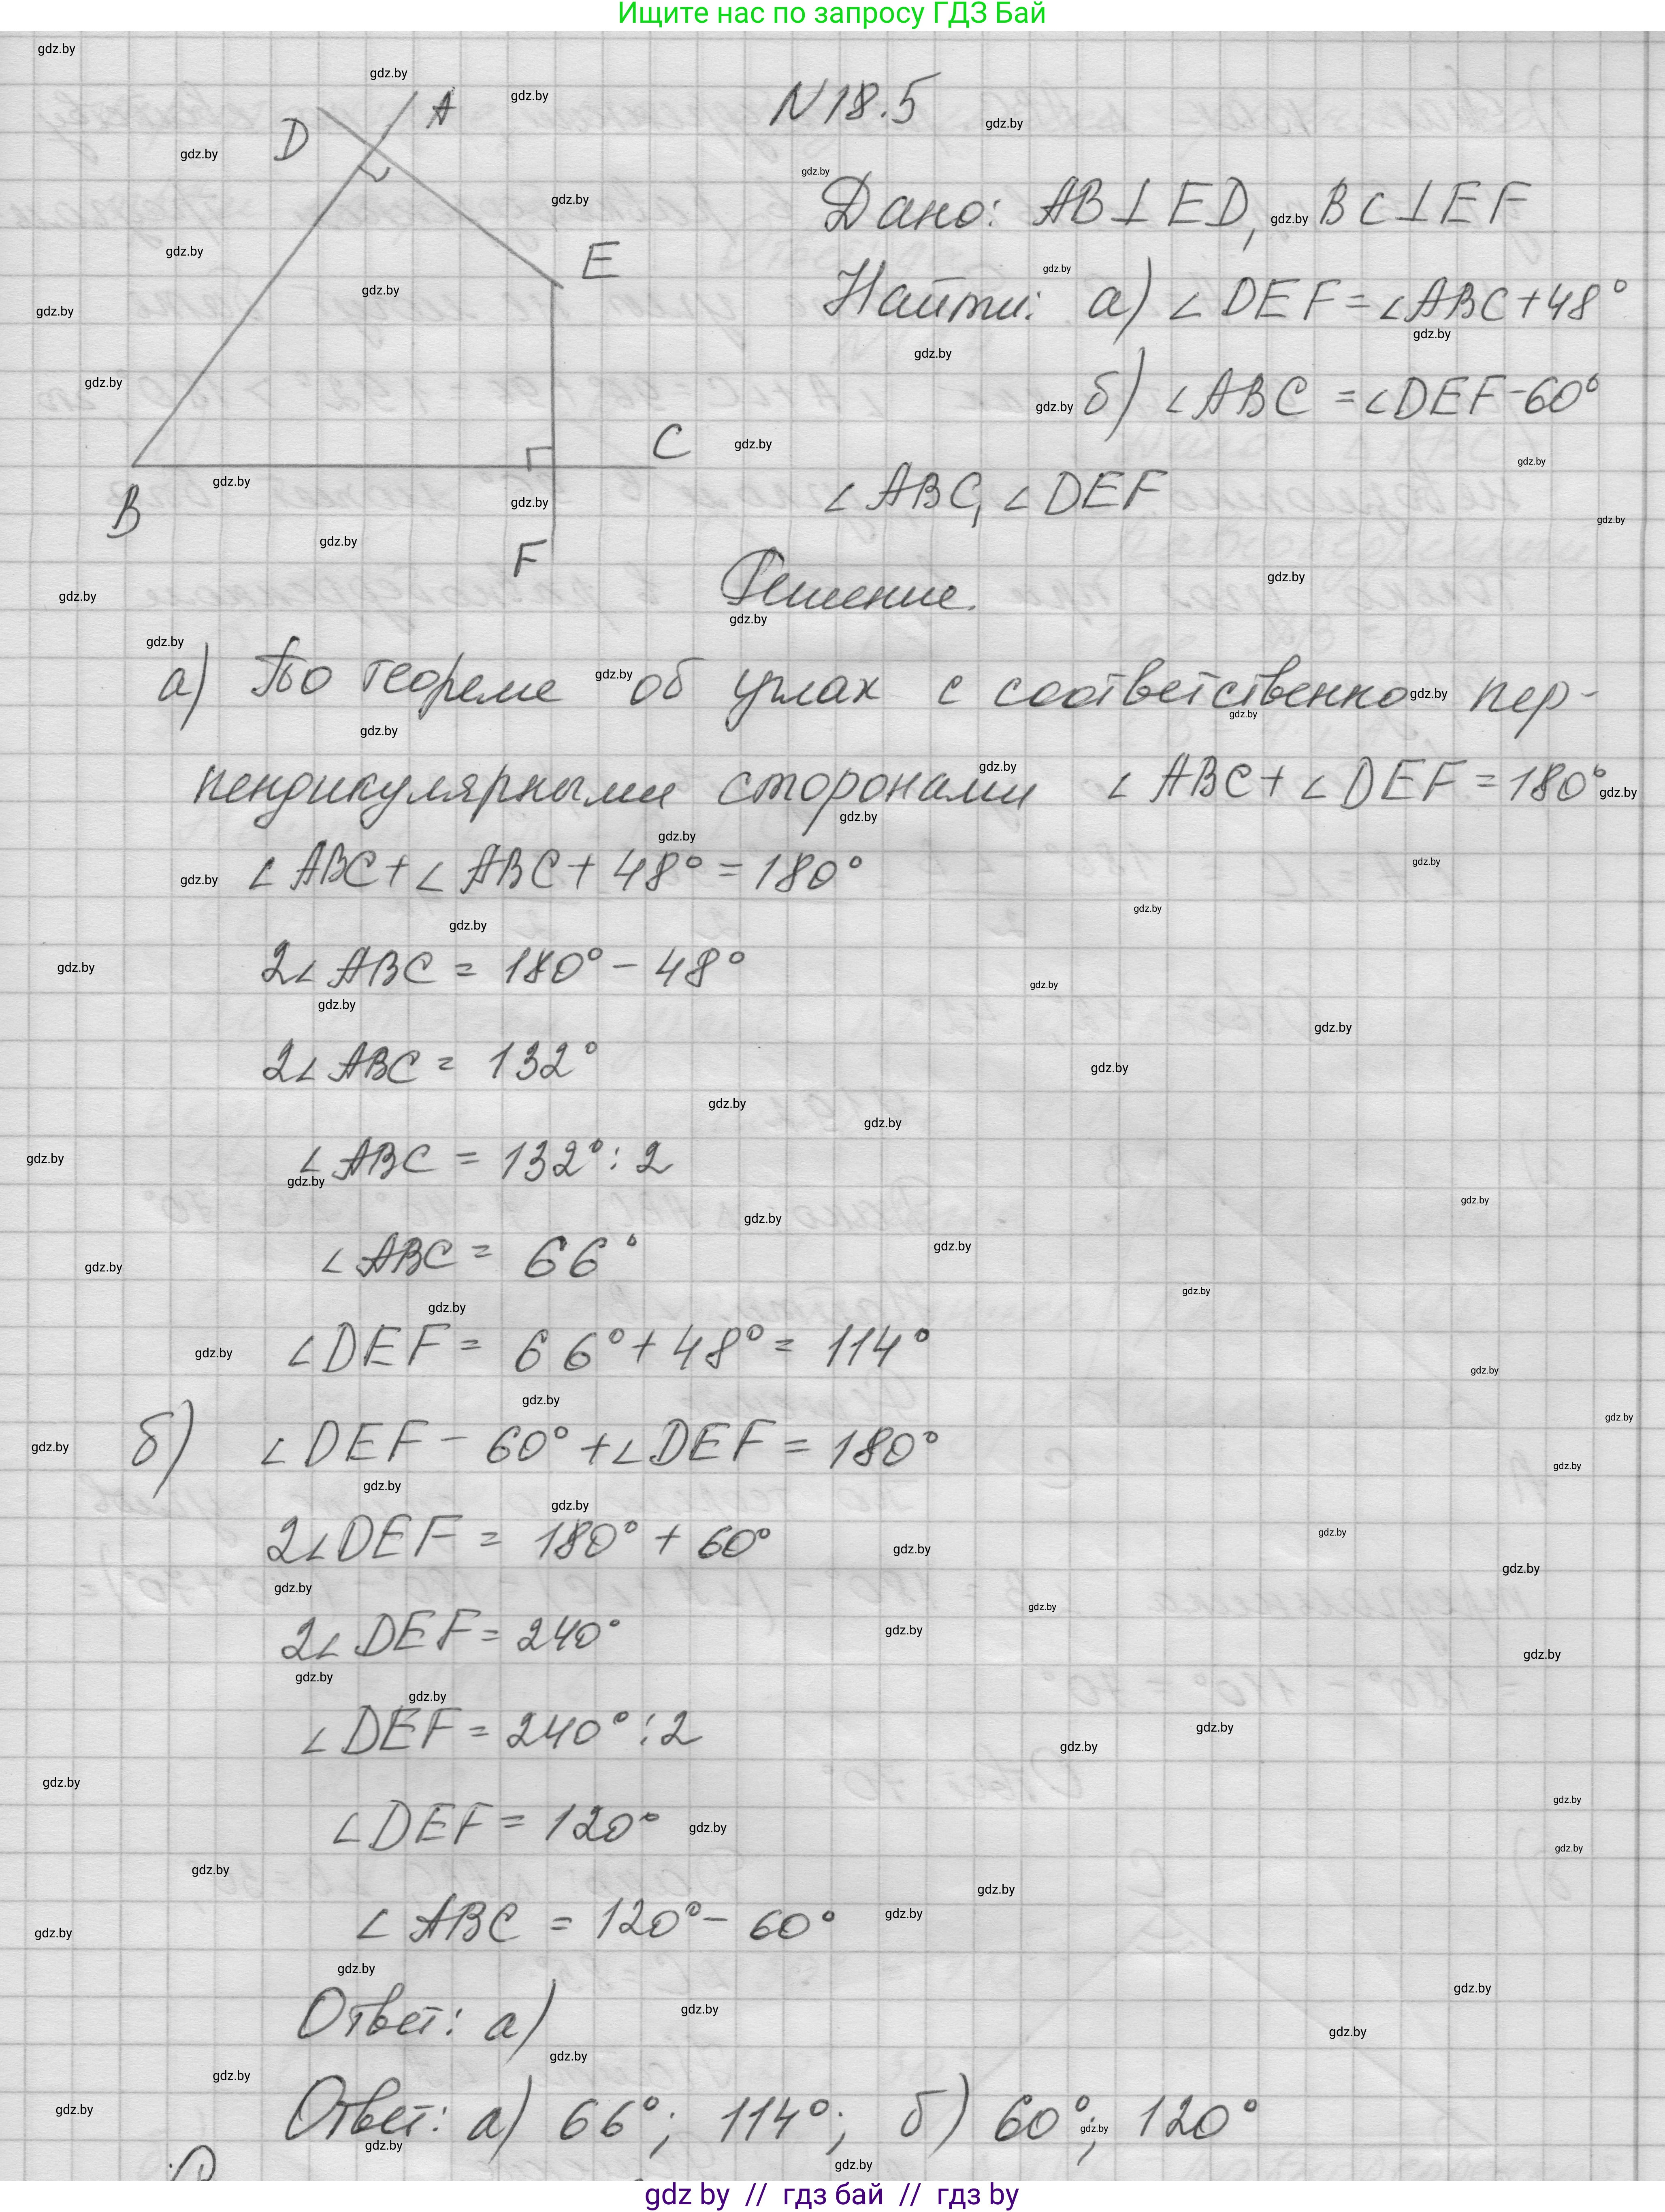 Ищите нас по запросу ГДЗ Бай
N 18.5
D
A
E
B
C
F
Дано: AB⊥ED, BC⊥EF
Найти: а) ∠DEF=∠ABC+48°
б) ∠ABC =∠DEF-60°
∠ABC, ∠DEF
Решение.
а) По теореме об углах с соответственно пер-
пендикулярными сторонами ∠ABC+∠DEF=180°
∠ABC+∠ABC+48°=180°
2∠ABC = 180°-48°
2∠ABC = 132°
∠ABC = 132°:2
∠ABC = 66°
∠DEF = 66°+48°= 114°
б) ∠DEF - 60°+∠DEF = 180°
2∠DEF = 180°+60°
2∠DEF = 240°
∠DEF = 240°:2
∠DEF = 120°
∠ABC = 120°-60°
Ответ: а)
Ответ: а) 66°; 114°; б) 60°; 120°
gdz by // гдз бай // гдз by